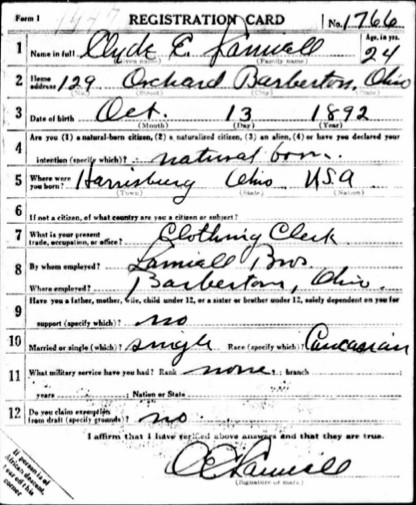 Form 1
1477
REGISTRATION CARD
No. 1766
1 Name in full Clyde E. Lamiell
(Given name) (Family name)
Age, in yrs. 24
2 Home address 129 Orchard Barberton, Ohio
(No.) (Street) (City) (State)
3 Date of birth Oct. 13 1892
(Month) (Day) (Year)
Are you (1) a natural-born citizen, (2) a naturalized citizen, (3) an alien, (4) or have you declared your
4 intention (specify which)? natural born.
5 Where were you born? Harrisburg Ohio USA
(Town) (State) (Nation)
6 If not a citizen, of what country are you a citizen or subject?
7 What is your present trade, occupation, or office? Clothing Clerk
8 By whom employed? Lamiell Bros
Where employed? Barberton, Ohio.
9 Have you a father, mother, wife, child under 12, or a sister or brother under 12, solely dependent on you for
support (specify which)? no
10 Married or single (which)? single Race (specify which)? Caucasian
11 What military service have you had? Rank none ; branch
years ; Nation or State
12 Do you claim exemption from draft (specify grounds)? no
I affirm that I have verified above answers and that they are true.
C E Lamiell
(Signature or mark)
If person is of African descent, tear off this corner